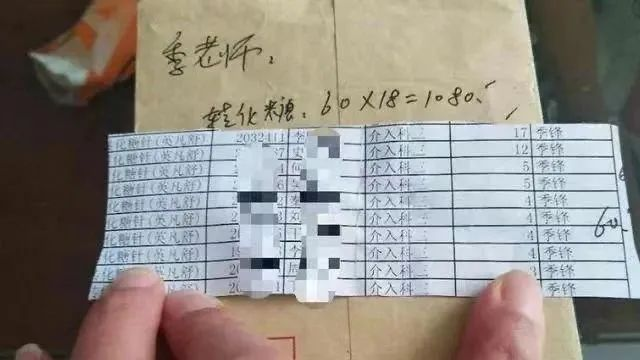 季老师：
转化糖：60×18=1080.
化糖针(英凡舒) 2032411 李 介入科三 17 季锋
化糖针(英凡舒) 史 介入科三 12 季锋
化糖针(英凡舒) 介入科三 5 季锋
化糖针(英凡舒) 介入科三 5 季锋
化糖针(英凡舒) 介入科三 4 季锋
化糖针(英凡舒) 介入科三 4 季锋
化糖针(英凡舒) 介入科三 4 季锋
化糖针(英凡舒) 介入科三 4 季锋
化糖针(英凡舒) 介入科三 3 季锋
季锋
60